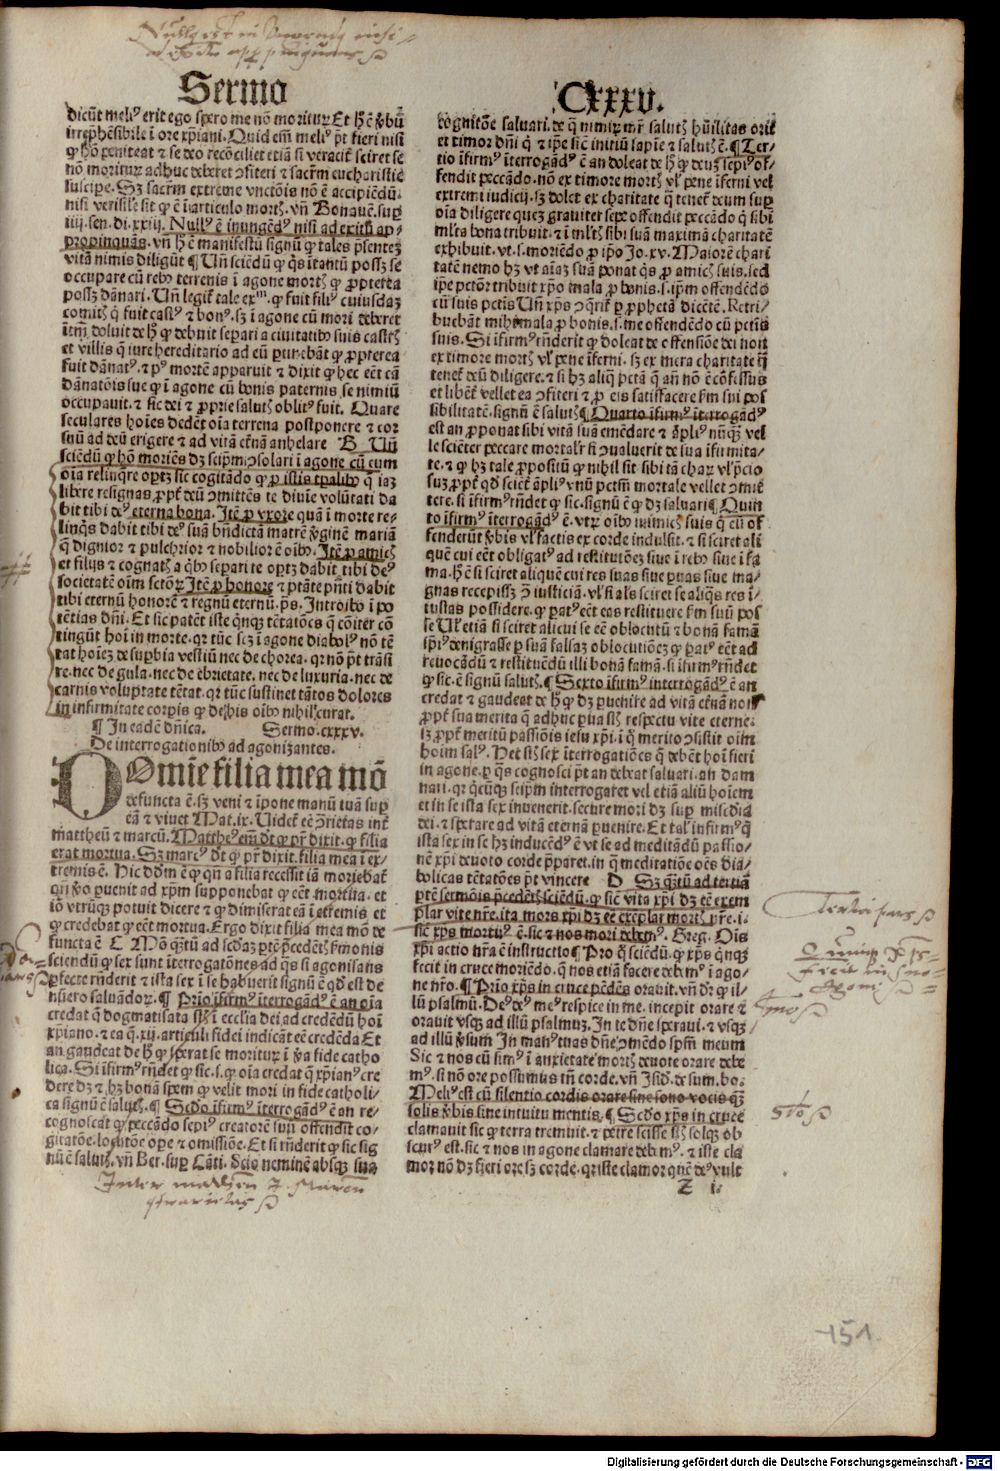 Sermo
CXXXV.
dicūt meliꝰ erit ego spero me nō moriturꝝ Et hꝫ ē ꝟbū
irrep̄hēsibile ī ore xp̄iani. Quid em̄ meliꝰ pt̄ fieri nisi
ꝙ hō peniteat ⁊ se deo recōciliet etiā si veracit̄ sciret se
nō morituꝝ adhuc deberet ꝯfiteri ⁊ sacr̄m eucharistie
suscipe. Sꝫ sacr̄m extreme vnctōis nō ē accipiēdū.
nisi verisile sit ꝙ ē ī articulo mort̄. vn̄ Bonauē. sup̄
iiij. sen. di. xxiij. Nullꝰ ē inungēdꝰ nisi ad exitū ap⸗
propinquās. vn̄ hꝫ ē manifestū signū ꝙ tales p̄sentez
vitā nimis diligūt ¶ Un̄ sciēdū ꝙ q̄s ītantū possꝫ se
occupare cū rebꝰ terrenis ī agone mort̄ ꝙ ꝓpterea
possꝫ dānari. Un̄ legit̄ tale exᵐ. ꝙ fuit filiꝰ cuiusdaz
comit̄ q̄ fuit castꝰ ⁊ bonꝰ. sꝫ ī agone cū mori deberet
itm̄ doluit de hꝫ ꝙ debuit separi a ciuitatibꝰ suis castr̄
et villis q̄ iure hereditario ad eū ꝑtinebāt ꝙ ꝓpterea
fuit dānatꝰ. ⁊ pꝰ mortē apparuit ⁊ dixit ꝙ hec eēt cā
dānatōis sue ꝙ ī agone cū bonis paternis se nimiū
occupauit. ⁊ sic dei ⁊ ꝓprie salut̄ oblitꝰ fuit. Quare
seculares hoīes debēt oīa terrena postponere ⁊ cor
suū ad deū erigere ⁊ ad vitā et̄nā anhelare B. Un̄
sciēdū ꝙ hō moriēs dꝫ seip̄m ꝯsolari ī agone cū eum
oīa relinq̄re oportꝫ sic cogitādo ꝙ ꝓ istis tꝑalibꝰ q̄ iaꝫ
libere resignas ꝓpt̄ deū ꝯmittēs te diuīe volūtati da
bit tibi deꝰ eterna bona. Itē ꝓ vxore quā ī morte re⸗
linq̄s dabit tibi deꝰ suā bn̄dictā matrē ꝟginē mariā
q̄ dignior ⁊ pulchrior ⁊ nobilior ē oībꝰ. Itē ꝓ amic̄
et filijs ⁊ cognat̄ a q̄bꝰ separi te oportꝫ dabit tibi deꝰ
societatē oīm sctōꝝ Itē ꝓ honore ⁊ ptāte pn̄ti dabit
tibi eternū honorē ⁊ regnū eternū. ps̄. Introibo ī po
tētias dn̄i. Et sic patēt iste q̄nqꝫ tētatōes q̄ cōiter cō
tingūt hoī in morte. qꝛ tūc scꝫ ī agone diabolꝰ nō tē
tat hoīez de supbia vestiū nec de chorea. qꝛ nō pt̄ trāsi
re. nec de gula. nec de ebrietate. nec de luxuria. nec de
carnis voluptate tētat. qꝛ tūc sustinet tātos dolores
in infirmitate corpis ꝙ de his oībꝰ nihil curat.
¶ In eadē dn̄ica. Sermo. cxxxv.
De interrogationibꝰ ad agonizantes.
DOmīe filia mea mō
defuncta ē. sꝫ veni ⁊ īpone manū tuā sup̄
eā ⁊ viuet Mat. ix. Uidet̄ eē ꝯrietas int̄
mattheū ⁊ marcū. Mattheꝰ em̄ dt̄ ꝙ pr̄ dixit. ꝙ filia
erat mortua. Sꝫ marcꝰ dt̄ ꝙ pr̄ dixit. filia mea ī ex⸗
tremis ē. Hic dd̄m ē ꝙ qn̄ a filia recessit iā moriebat̄
qn̄ ꝟo puenit ad xp̄m supponebat ꝙ eēt mortua. et
iō vtrūqꝫ potuit dicere ⁊ ꝙ dimiserat eā ī extremis et
ꝙ credebat ꝙ eēt mortua. Ergo dixit filia mea mō de
functa ē C Mō q̄ntū ad scd̄az ptē p̄cedēt̄ sermonis
sciendū ꝙ sex sunt īterrogatōnes ad q̄s si agonisans
pfecte rn̄derit ⁊ ista sex ī se habuerit signū ē qd̄ est de
nūero saluādoꝝ. ¶ Prīo īfirmꝰ īterrogādꝰ ē an oīa
credat q̄ dogmatisata st̄ ī ecclīa dei ad credēdū hoī
xp̄iano. ⁊ ea q̄. xij. articuli fidei indicāt eē credēda Et
an gaudeat de hꝫ ꝙ sperat se moriturꝝ ī ꝟa fide catho
lica. Si īfirmꝰ rn̄det ꝙ sic. s. ꝙ oīa credat q̄ xp̄ianꝰ cre
dere dꝫ ⁊ hꝫ bonā spem ꝙ velit mori in fide catholi⸗
ca signū ē salut̄. ¶ Scd̄o īfirmꝰ īterrogādꝰ ē an re⸗
cognoscat ꝙ peccādo sepiꝰ creatorē suū offendit co⸗
gitatōe. locutōe ope ⁊ omissiōe. Et si rn̄derit ꝙ sic sig
nū ē salut̄. vn̄ Ber. sup̄ Cāti. Scio neminē absqꝫ sua
cognitōe saluari. de q̄ nimiꝝ mr̄ salut̄ hūilitas orit̄
et timor dn̄i q̄ ⁊ īpe sic̄ initiū sapīe ⁊ salut̄ ē. ¶ Ter⸗
tio īfirmꝰ īterrogādꝰ ē an doleat de hꝫ ꝙ deuꝫ sepiꝰ of⸗
fendit peccādo. nō ex timore mort̄ vl̓ pene īferni vel
extremi iudicij. sꝫ dolet ex charitate q̄ tenet̄ deum sup̄
oīa diligere quez grauiter sepe offendit peccādo q̄ sibi
ml̓ta bona tribuit. ⁊ ī ml̓t̄ sibi suā maximā charitatē
exhibuit. vt. s. moriēdo ꝓ ip̄o Jo. xv. Maiorē chari
tatē nemo hꝫ vt aīaꝫ suā ponat q̄s ꝓ amic̄ suis. sed
īpe pctōr tribuit xp̄o mala ꝓ bonis. s. ip̄m offendēdo
cū suis pctīs Un̄ xp̄s ꝯq̄rit̄ ꝑ ꝓphetā dicētē. Retri⸗
buebāt mihi mala ꝓ bonis. s. me offendēdo cū pctīs
suis. Si īfirmꝰ rn̄derit ꝙ doleat de offensiōe dei non
ex timore mort̄ vl̓ pene īferni. sꝫ ex mera charitate q̄
tenet̄ deū diligere. ⁊ si hꝫ aliq̄ pctā q̄ an̄ nō ē cōfessus
et libēt̄ vellet ea ꝯfiteri ⁊ ꝓ eis satisfacere fm̄ sui pos
sibilitatē. signū ē salut̄ ¶ Quarto īfirmꝰ īterrogādꝰ
est an ꝓponat sibi vitā suā emēdare ⁊ āpliꝰ nūqꝫ vel
le sciēter peccare mortalr̄ si ꝯualuerit de sua īfirmita⸗
te. ⁊ ꝙ hꝫ tale ꝓpositū ꝙ nihil sit sibi tā charꝝ vl̓ p̄cio
suꝫ ꝓpt̄ qd̄ scient̄ āpliꝰ vnū pctm̄ mortale vellet ꝯmit
tere. si īfirmꝰ rn̄det ꝙ sic. signū ē ꝙ dꝫ saluari ¶ Quin
to īfirmꝰ īterrogādꝰ ē. vtꝝ oībꝰ inimic̄ suis q̄ eū of
fenderūt ꝟbis vl̓ factis ex corde indulsit. ⁊ si sciret ali
quē cui eēt obligatꝰ ad restitutōez siue ī rebꝰ siue ī fa
ma. hꝫ ē si sciret aliquē cui res suas siue paruas siue ma⸗
gnas recepissꝫ ꝯ iusticiā. vl̓ si als̄ sciret se aliq̄s res ī⸗
iustas possidere. ꝙ patꝰ eēt eas restituere fm̄ suū pos
se Ul̓ etiā si sciret alicui se eē oblocutū ⁊ bonā famā
ip̄iꝰ denigrasse ꝑ suā falsaz oblocutiōez ꝙ patꝰ eēt ad
reuocādū ⁊ restituēdū illi bonā famā. si īfirmꝰ rn̄det
ꝙ sic. ē signū salut̄. ¶ Sexto īfirmꝰ interrogādꝰ ē an
credat ⁊ gaudeat de hꝫ ꝙ dꝫ puenire ad vitā et̄nā non
ꝓpt̄ sua merita q̄ adhuc parua st̄ respectu vite eterne.
sꝫ ꝓpt̄ meritū passiōis iesu xp̄i. ī q̄ merito ꝯsistit oīm
hoīm salꝰ. Hec st̄ sex īterrogatiōes q̄ debēt hoī fieri
in agone. ꝑ q̄s cognosci pt̄ an debeat saluari. an dam
nari. qꝛ q̄cūqꝫ seip̄m interrogaret vel etiā aliū hoīem
et in se ista sex inuenerit. secure mori dꝫ sup̄ misc̄dīa
dei. ⁊ spectare ad vitā eternā puenire. Et talꝰ infirmꝰ q̄
ista sex in se hꝫ inducēdꝰ ē vt se ad meditādū passio⸗
nē xp̄i deuoto corde p̄paret. in q̄ meditatiōe oēs dia⸗
bolicas tētatōes pt̄ vincere D Sꝫ q̄ntū ad tertiā
ptē sermōis p̄cedēt̄ sciēdū. ꝙ sic̄ vita xp̄i dꝫ eē exem
plar vite nr̄e. ita mors xp̄i dꝫ eē exēplar mort̄ nr̄e. i.
sic̄ xp̄s mortuꝰ ē. sic ⁊ nos mori debemꝰ. Greg. Oīs
xp̄i actio nr̄a ē instructio ¶ Pro q̄ sciēdū. ꝙ xp̄s q̄nqꝫ
fecit in cruce moriēdo. q̄ nos etiā facere debemꝰ ī ago⸗
ne nr̄o. ¶ Prīo xp̄s in cruce pēdēs orauit. vn̄ dr̄ ꝙ il⸗
lū psalmū. Deꝰ deꝰ meꝰ respice in me. incepit orare ⁊
orauit vsqꝫ ad illū psalmuꝫ. In te dn̄e speraui. ⁊ vsqꝫ
ad illū ꝟsum In manꝰ tuas dn̄e ꝯmēdo spm̄ meum
Sic ⁊ nos cū simꝰ ī anxietate mort̄ deuote orare debe
mꝰ. si nō ore possumus tn̄ corde. vn̄ Isid̄. de sum. bo.
Meliꝰ est cū silentio cordis orare sine sono vocis q̄ꝫ
solis ꝟbis sine intuitu mentis. ¶ Scd̄o xp̄s in cruce
clamauit sic ꝙ terra tremuit. ⁊ petre scisse st̄ solqꝫ ob
scurꝰ est. sic ⁊ nos in agone clamare debemꝰ. ⁊ iste cla
mor nō dꝫ fieri ore sꝫ corde. qꝛ iste clamor quē deꝰ vult
Z i
Tertia pars
151
Digitalisierung gefördert durch die Deutsche Forschungsgemeinschaft - DFG